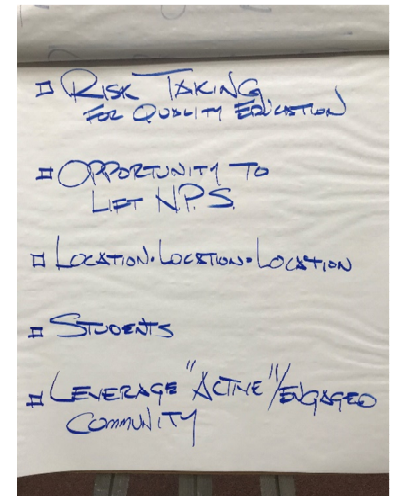 Risk Taking
For Quality Education
Opportunity to
Lift N.P.S.
Location. Location. Location
Students
Leverage "Active"/Engaged
Community